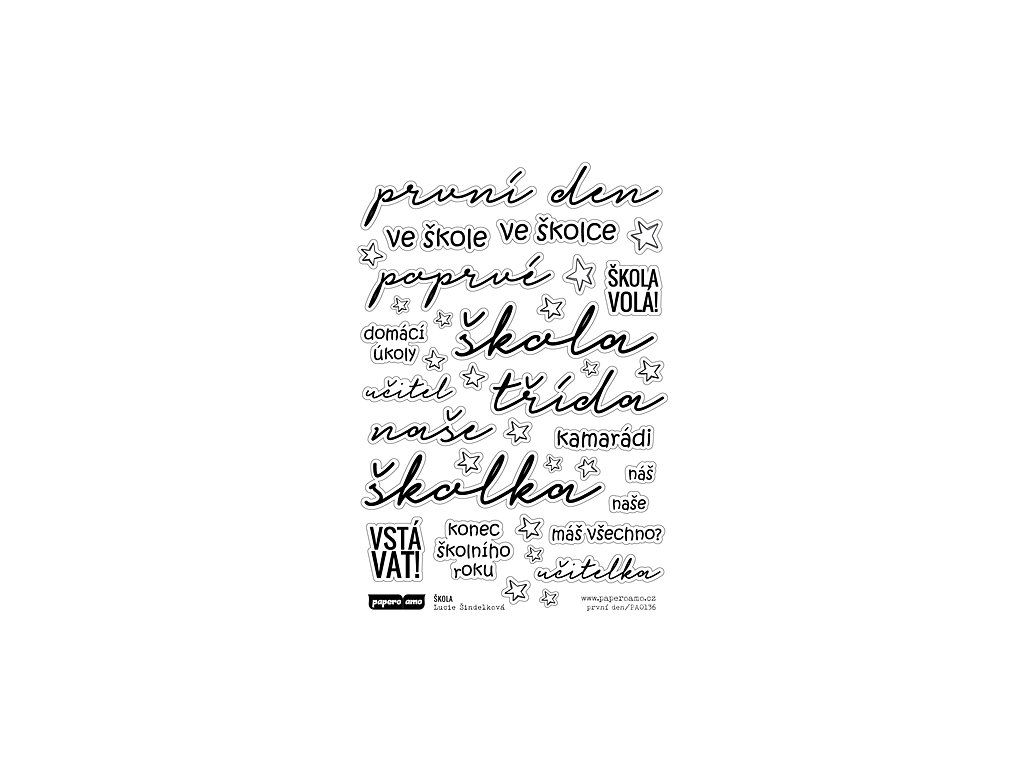 první den
ve škole ve školce
poprvé
ŠKOLA
VOLÁ!
domácí
úkoly
škola
učitel
třída
naše
kamarádi
školka
náš
naše
VSTÁ
VAT!
konec
školního
roku
máš všechno?
učitelka
papero amo
ŠKOLA
Lucie Šindelková
www.paperoamo.cz
první den/PA0136